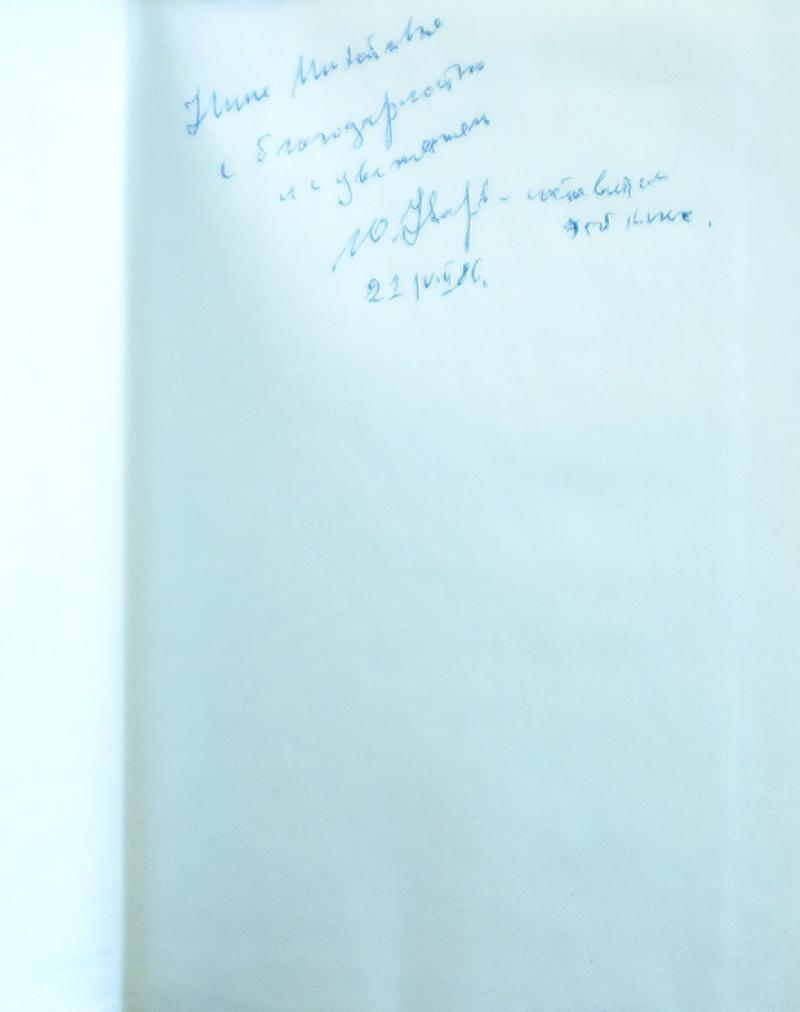 Нине Михайловне
с благодарностью
и с уважением
Ю. - составитель
этой книги.
22